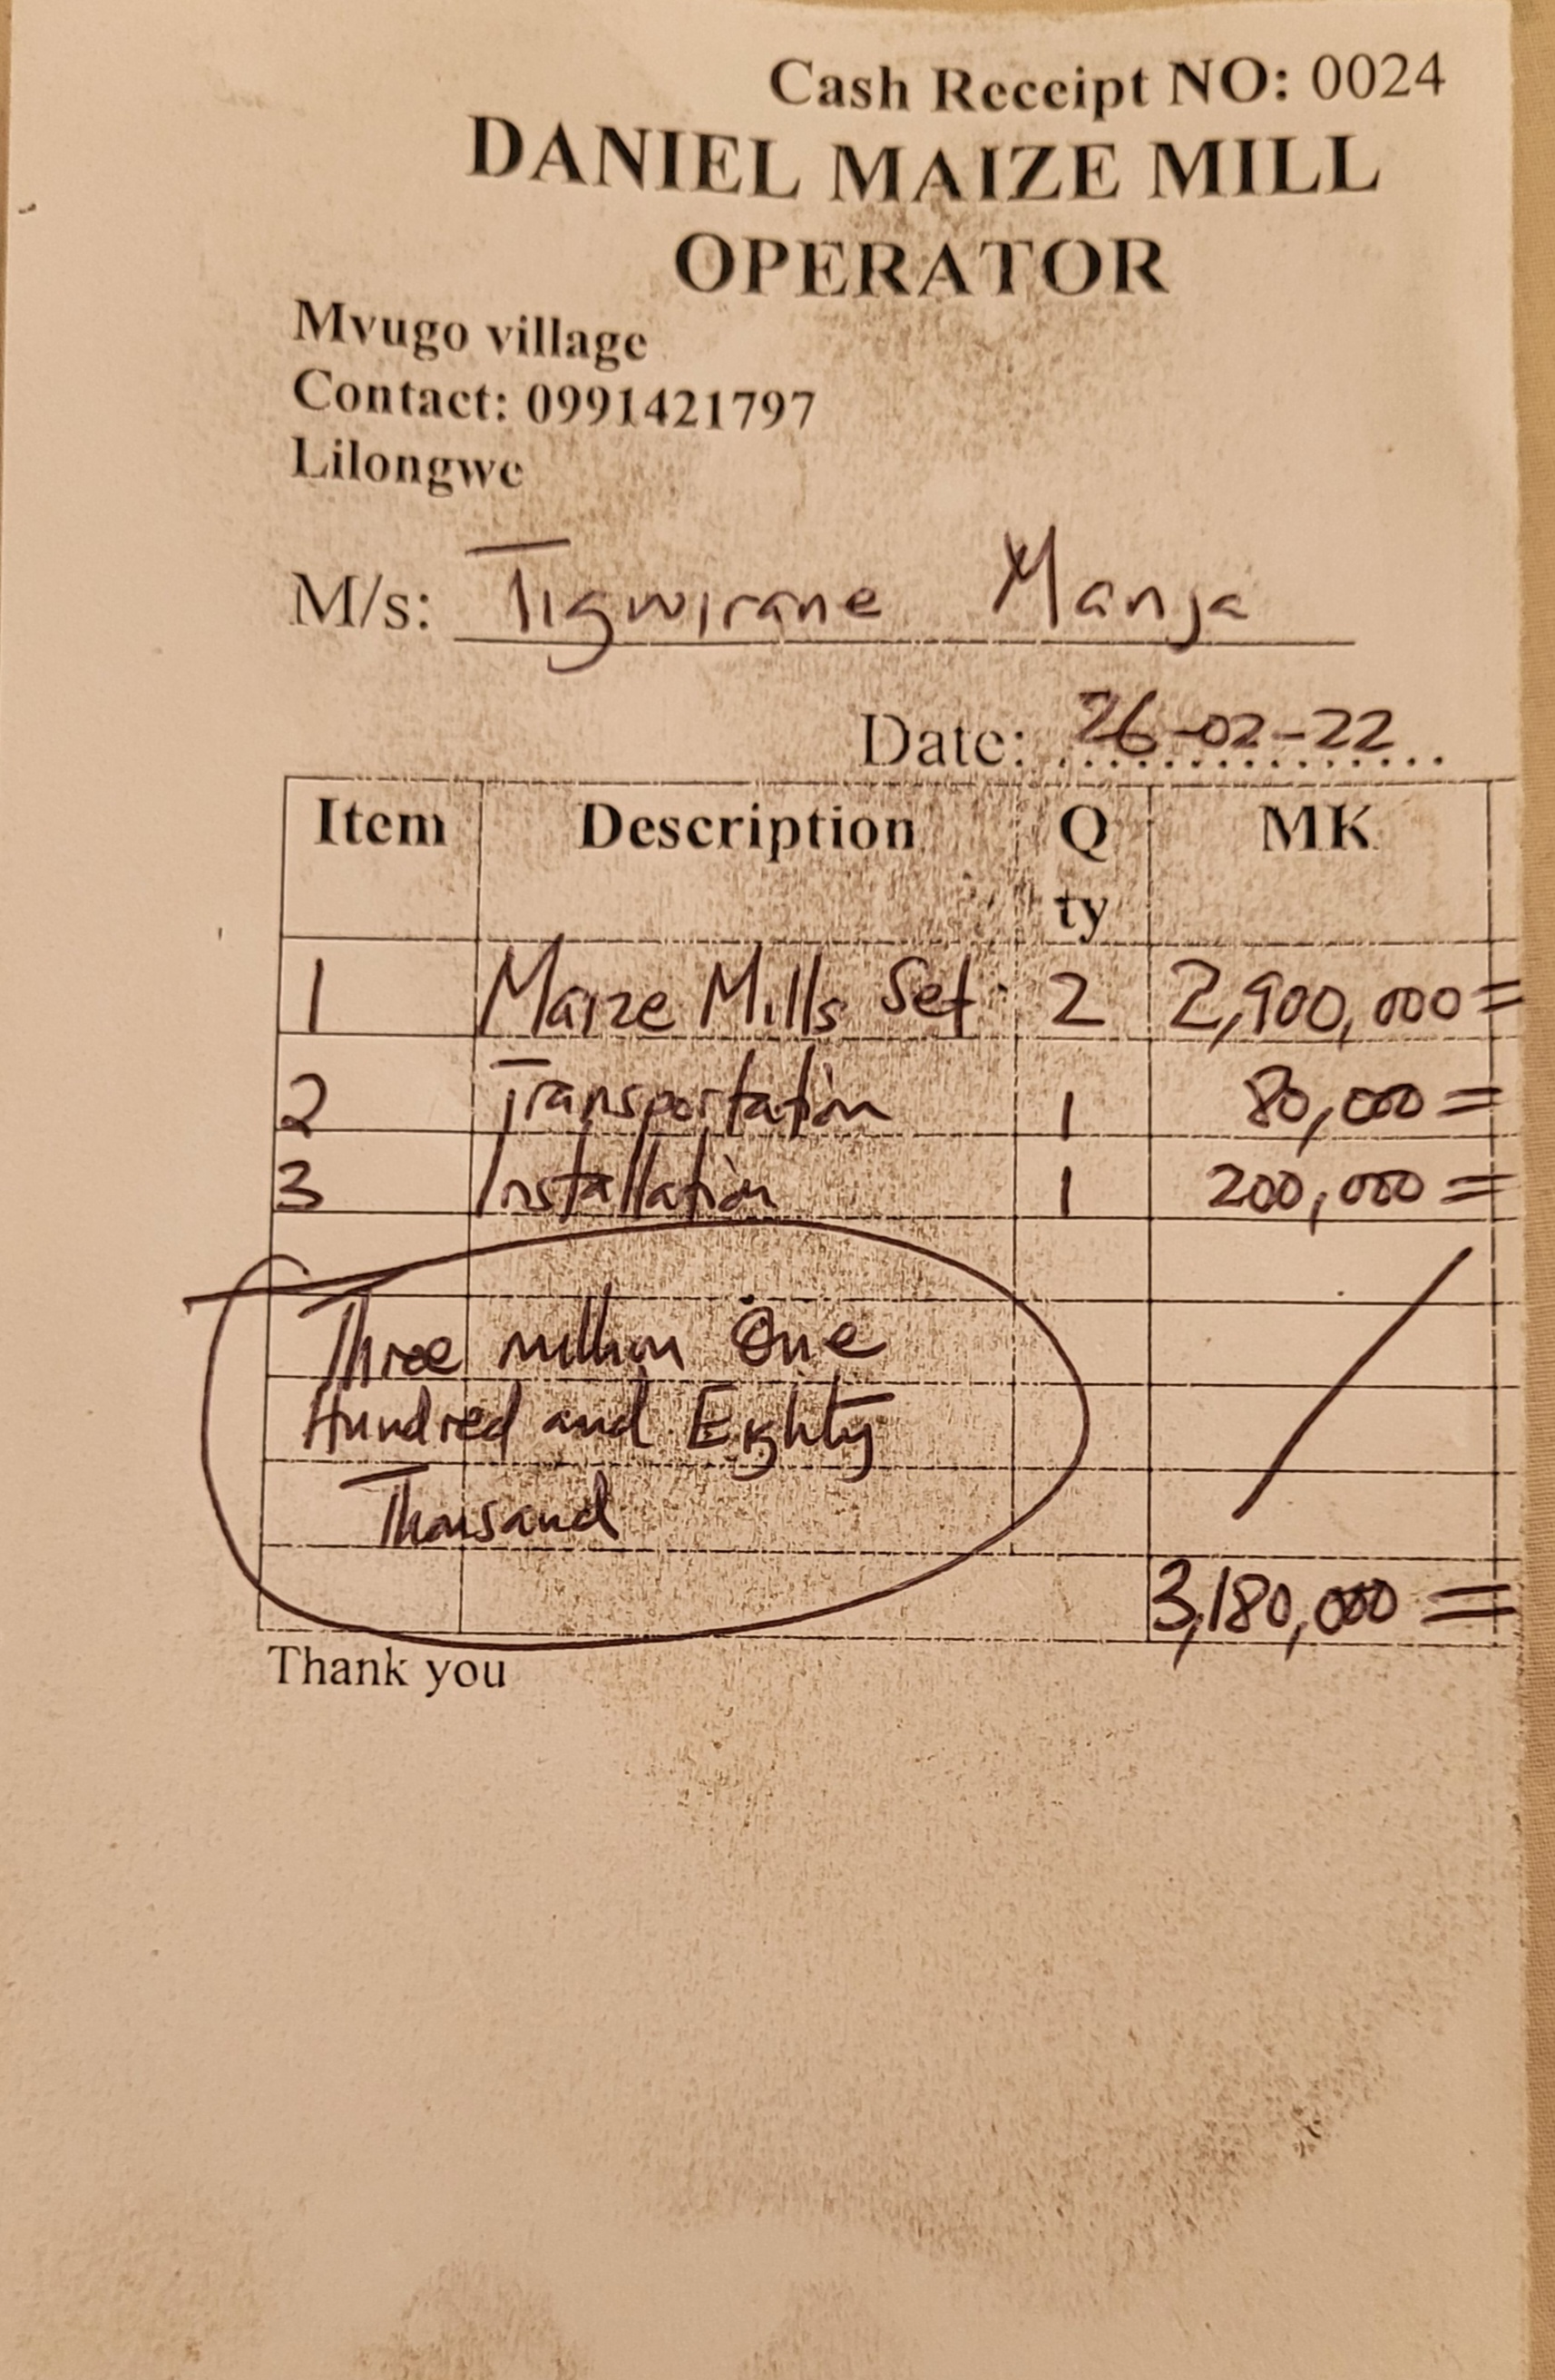 Cash Receipt NO: 0024
DANIEL MAIZE MILL
OPERATOR
Mvugo village
Contact: 0991421797
Lilongwe
M/s: Tigwirane Manja
Date: 26-02-22
Item Description Qty MK
1 Maize Mills Set 2 2,900,000=
2 Transportation 1 80,000=
3 Installation 1 200,000=
Three million One
Hundred and Eighty
Thousand
3,180,000=
Thank you